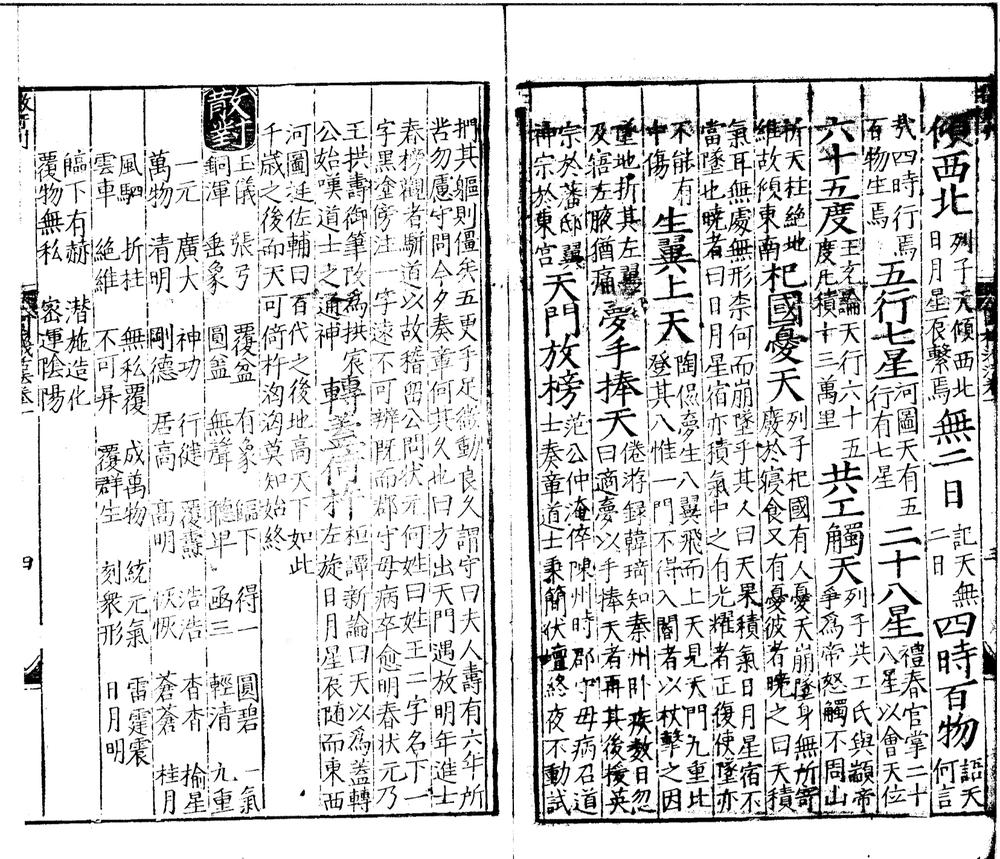 傾西北
列子天傾西北
日月星辰繫焉
無二日
記天無
二日
四時百物
語天
何言
哉四時行焉
百物生焉
五行七星
河圖天有五
行有七星
二十八星
禮春官掌二十
八星以會天位
六十五度
王玄論天行六十五
度度凡積十三萬里
共工觸天
列子共工氏與顓帝
爭爲帝怒觸不周山
折天柱絶地
維故傾東南
杞國憂天
列子杞國有人憂天崩墜身無所寄
廢於寢食又有憂彼者曉之曰天積
氣耳無處無形柰何而崩墜乎其人曰天果積氣日月星宿不
當墜也曉者曰日月星宿亦積氣中之有光耀者正復使墜亦
不能有
中傷
生翼上天
陶侃夢生八翼飛而上天見天門九重比
登其八惟一門不得入閽者以杖擊之因
墜地折其左翼
及寤左腋猶痛
夢手捧天
倦游録韓琦知秦州卧疾數日忽
曰適夢以手捧天者再其後援英
宗於藩邸翼
神宗於東宮
天門放榜
范公仲淹倅陳州時郡守母病召道
士奏章道士秉簡伏壇終夜不動試
捫其軀則僵矣五更手足微動良久謂守曰夫人壽有六年所
苦勿慮守問今夕奏章何其久也曰方出天門遇放明年進士
春榜觀者駢道以故稽留公問狀元何姓曰姓王二字名下一
字黑塗傍注一字遠不可辨既而郡守母病卒愈明春狀元乃
王拱壽御筆改爲拱宸
公始嘆道士之通神
轉蓋倚杵
桓譚新論曰天以爲蓋轉
左旋日月星辰随而東西
河圖廷佐輔曰百代之後地高天下如此
千歲之後而天可倚杵洶洶莫知始終
散對
玉儀 張弓 覆盆 有象 臨下 得一 圓碧 一氣
銅渾 垂象 圓蓋 無聲 聽卑 函三 輕清 九重
一元 廣大 神功 行健 覆燾 浩浩 杳杳 榆星
萬物 清明 剛德 居高 高明 恢恢 蒼蒼 桂月
風駟 折柱 無私覆 成萬物 統元氣 雷霆震
雲車 絶維 不可昇 覆群生 刻衆形 日月明
臨下有赫 潜施造化
覆物無私 密運陰陽
四